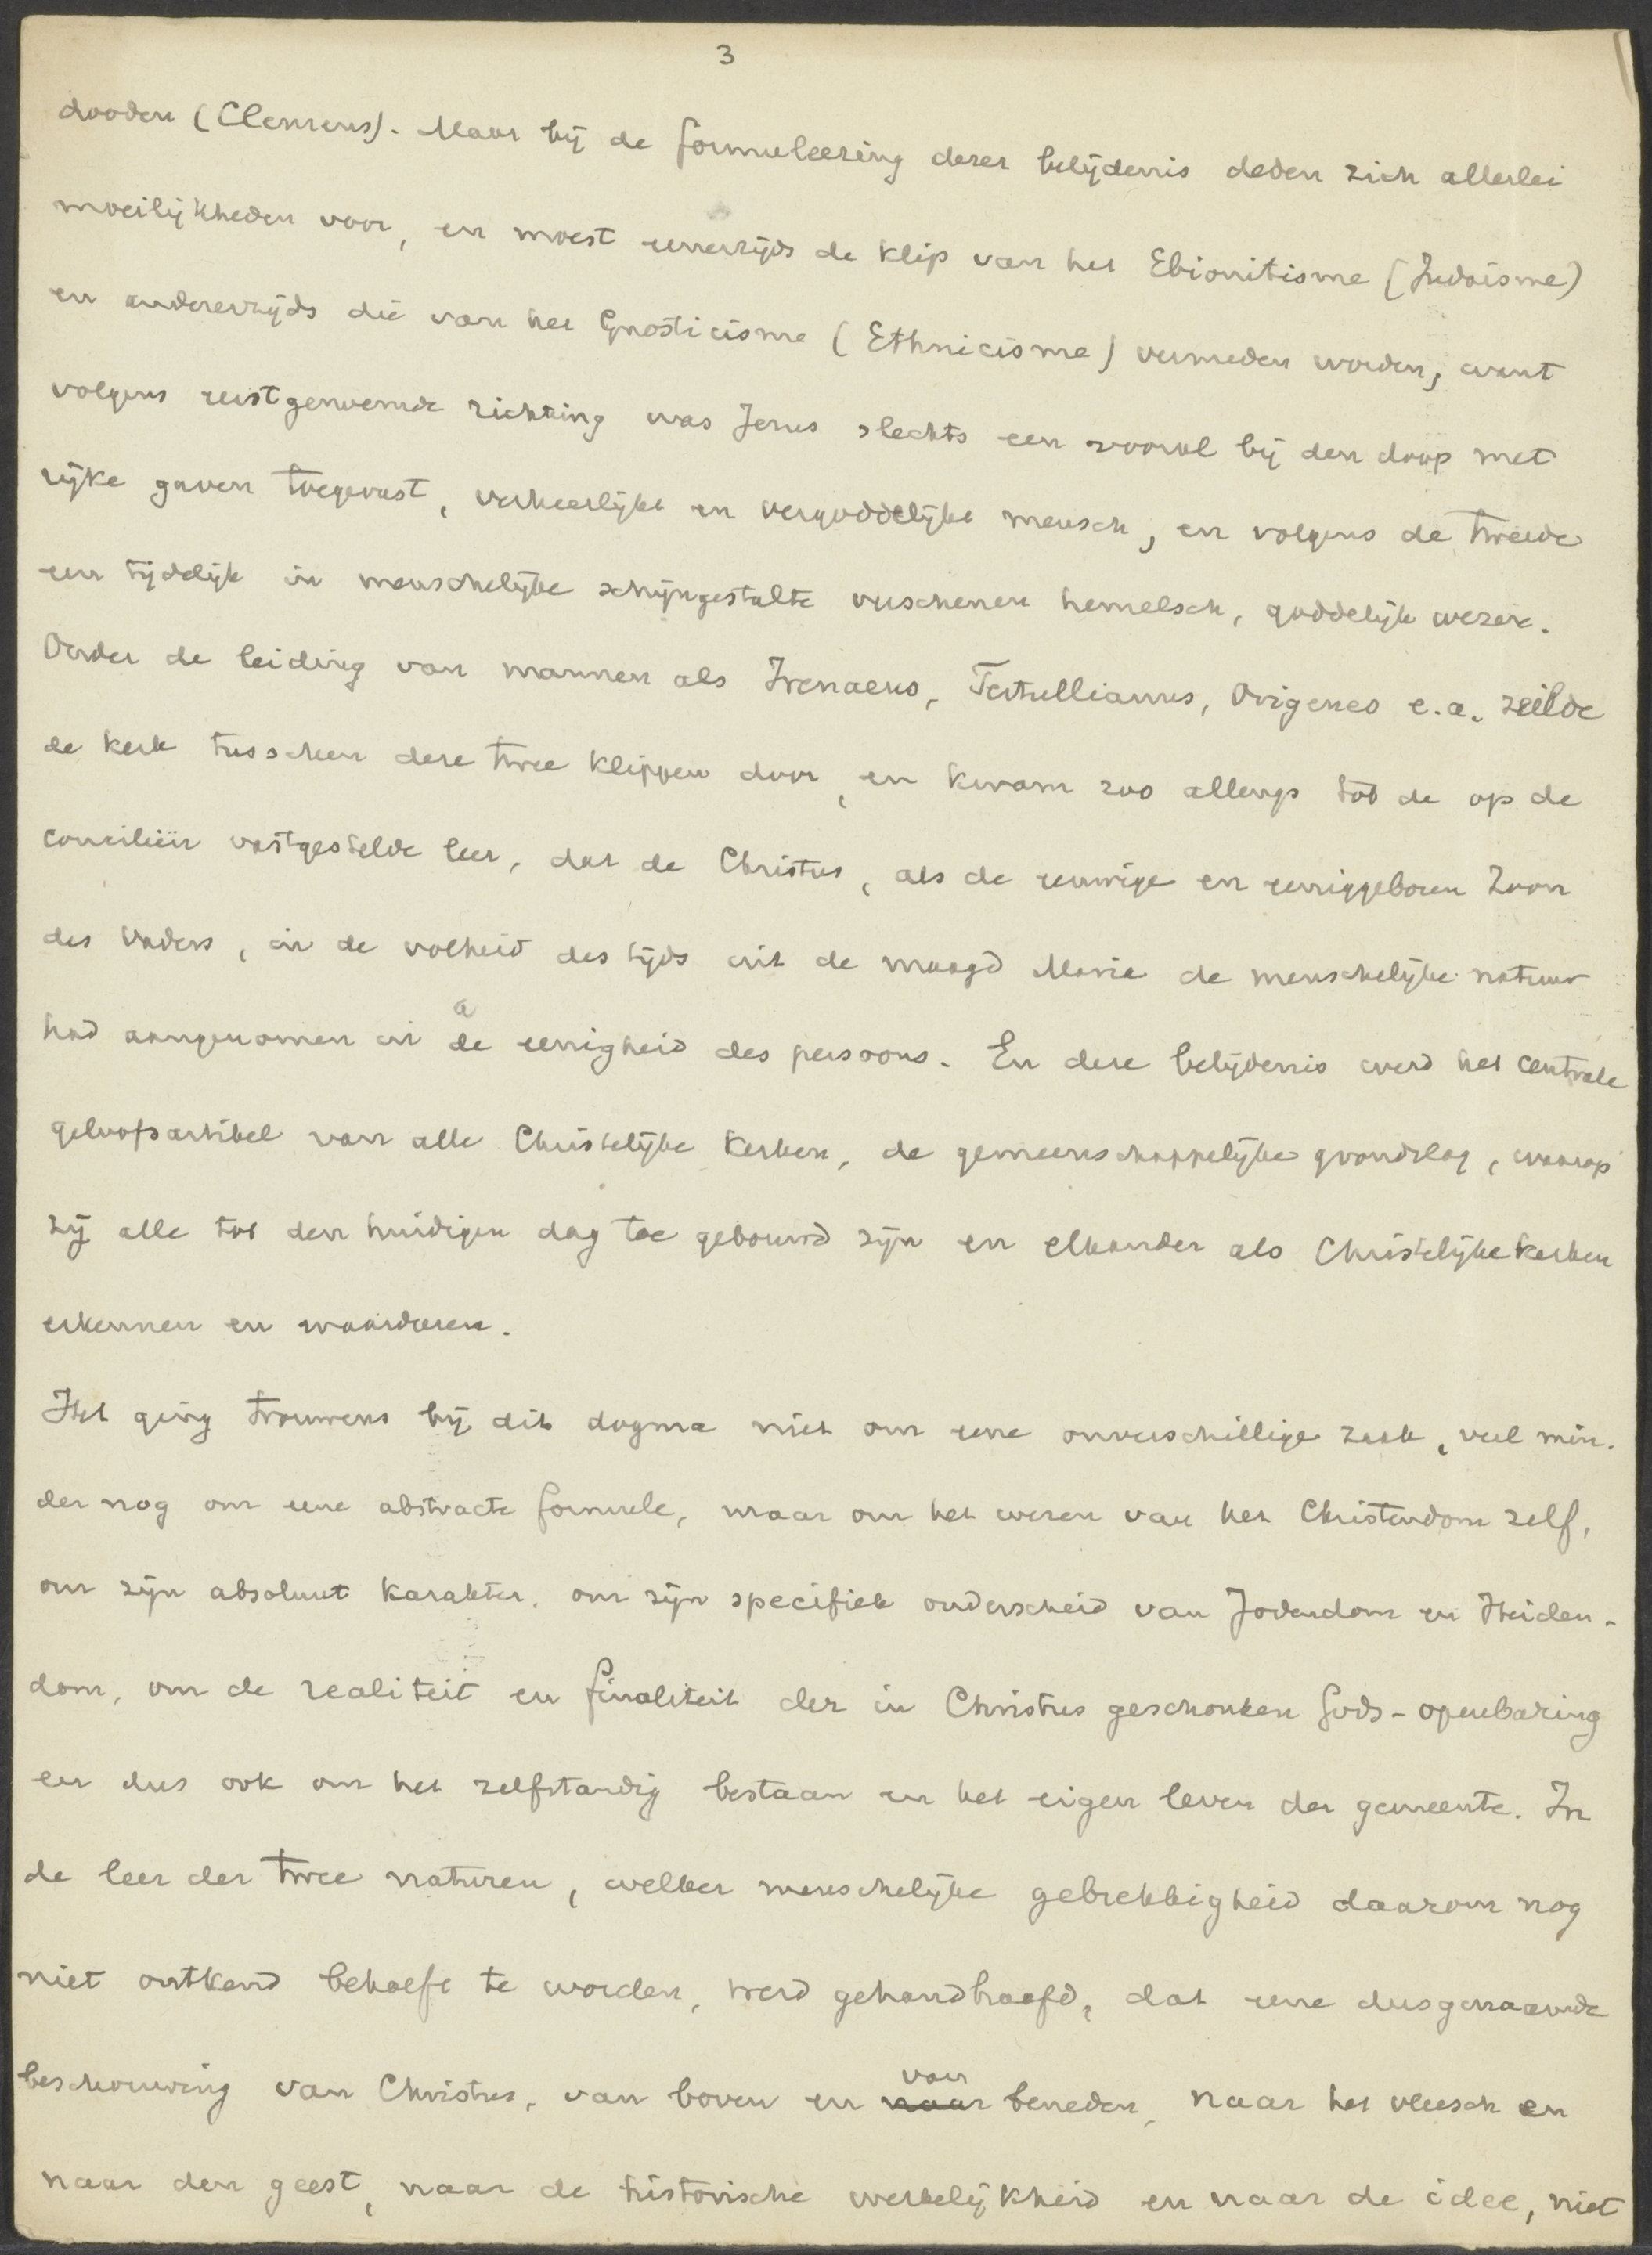 3
dooden (Clemens). Maar bij de formuleering dezer belijdenis deden zich allerlei
moeilijkheden voor, en moest eenerzijds de klip van het Ebionitisme (Judaisme)
en anderzijds die van het Gnosticisme (Ethnicisme) vermeden worden; want
volgens eerstgenoemde richting was Jezus slechts een vooral bij den doop met
rijke gaven toegerust, verheerlijkt en vergoddelijkt mensch, en volgens de tweede
een tijdelijk in menschelijke schijngestalte verschenen hemelsch, goddelijk wezen.
Onder de leiding van mannen als Irenaeus, Tertullianus, Origenes e.a. zeilde
de kerk tusschen deze twee klippen door, en kwam zoo allengs tot de op de
conciliën vastgestelde leer, dat de Christus, als de eeuwige en eeniggeboren Zoon
des Vaders, in de volheid des tijds uit de maagd Maria de menschelijke natuur
had aangenomen in de eenigheid des persoons. En deze belijdenis werd het centrale
geloofsartikel van alle Christelijke kerken, de gemeenschappelijke grondslag, waarop
zij alle tot den huidigen dag toe gebouwd zijn en elkander als Christelijke kerken
erkennen en waardeeren.
Het ging trouwens bij dit dogma niet om eene onverschillige zaak, veel min-
der nog om eene abstracte formule, maar om het wezen van het Christendom zelf,
om zijn absoluut karakter, om zijn specifiek onderscheid van Jodendom en Heiden-
dom, om de realiteit en finaliteit der in Christus geschonken Gods-openbaring
en dus ook om het zelfstandig bestaan en het eigen leven der gemeente. In
de leer der twee naturen, welker menschelijke gebrekkigheid daarom nog
niet ontkend behoeft te worden, werd gehandhaafd, dat eene dusgenaamde
beschouwing van Christus, van boven en naar van beneden, naar het vleesch en
naar den geest, naar de historische werkelijkheid en naar de idee, niet